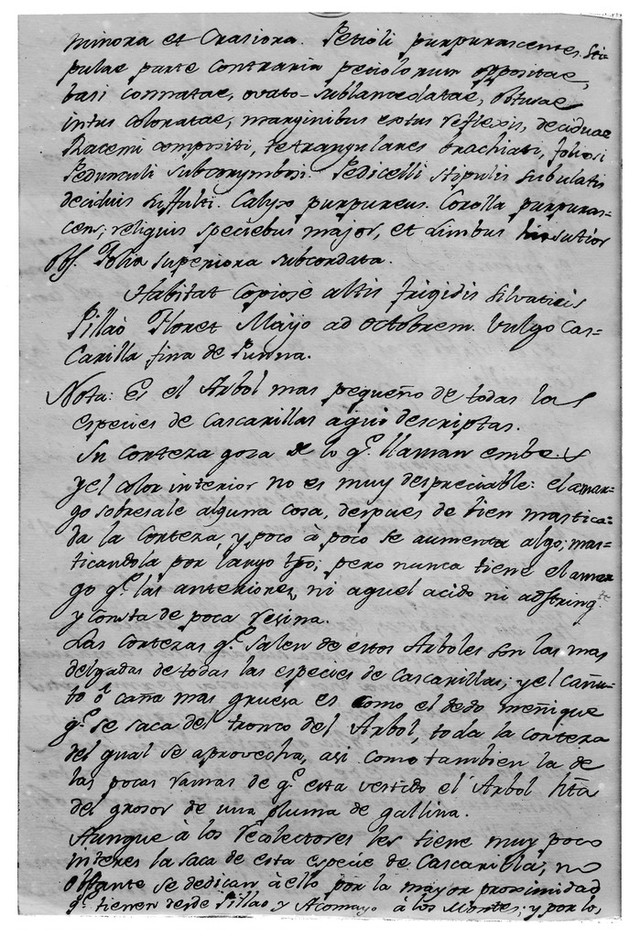 minora et Crasiora. Petioli purpurascentes. Sti-
pulae parte contraria peciolorum oppositae,
basi connatae, ovato-sublanceolatae, obtusae
intus coloratae, marginibus extus reflexis, deciduae
Racemi compositi, tetrangulares brachiati, foliosi
Pedunculi subcorymbosi. Pedicelli stipulis subulatis
deciduis suffulti. Calyx purpureus. Corolla purpuras-
cens, reliquis speciebus major, et Limbus hirsutior
Obs. Folia superiora subcordata.
Habitat copiosè altis frigidis silvaticis
Pillaò Floret Mayo ad octobrem. Vulgo Cas-
Carilla fina de Puruna.
Nota: Es el Arbol mas pequeño de todas las
especies de Cascarillas aqui descriptas.
Su Corteza goza de lo q.e llaman embes
y el color interior no es muy despreciable: el amar-
go sobresale alguna cosa, despues de bien mastica-
da la Corteza, y poco à poco se aumenta algo; mas-
ticandola por largo tpo; pero nunca tiene el amar
go q.e las anteriores, ni aquel acido ni adstring.te
y consta de poca resina.
Las Cortezas q.e salen de estos Arboles son las mas
delgadas de todas las especies de Cascarillas; y el cañu-
to ò caña mas gruesa es como el dedo meñique
q.e se saca del tronco del Arbol, toda la corteza
del qual se aprovecha, asi como tambien la de
las pocas ramas de q.e esta vestido el Arbol hta
del grosor de una pluma de gallina.
Aunque à los recolectores les tiene muy poco
interes la saca de esta especie de Cascarilla; no
Obstante se dedican à ello por la mayor proximidad
q.e tienen desde Pillao y Acomayo à los Montes; y por lo,